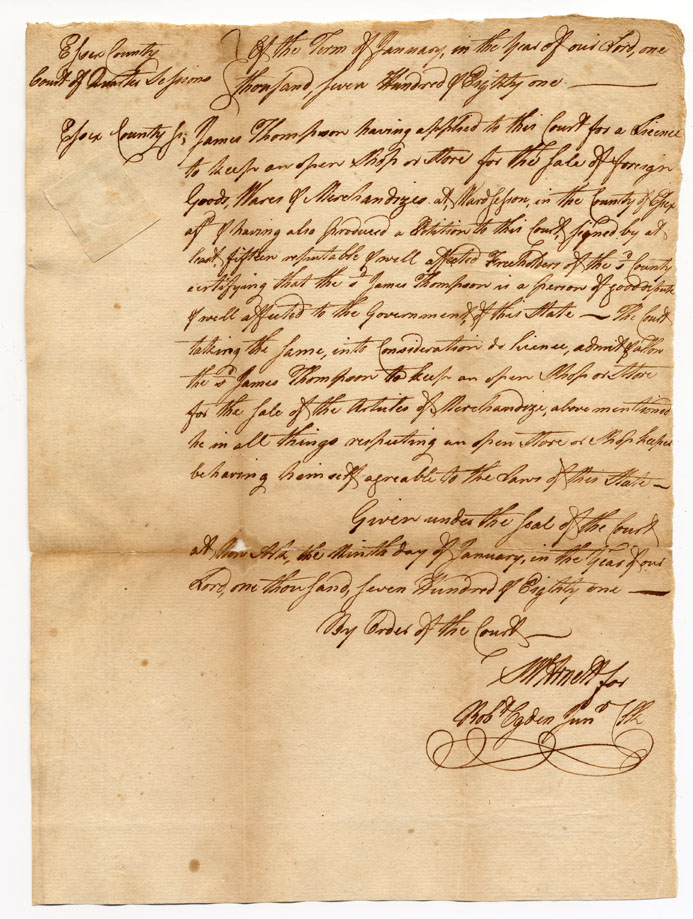 Essex County } Of the Term of January, in the Year of our Lord, one
Court of Quarter Sessions } thousand, seven Hundred & Eighty one. —
Essex County ss; James Thompson having applied to this Court for a Licence
to keep an open Shop or Store for the Sale of foreign
Goods, Wares & Merchandizes at Wardsesson, in the County of Essex
afsd. & having also produced a Petition to this Court, signed by at
least fifteen reputable & well affected Freeholders of the sd. County
certifying that the sd. James Thompson is a person of good repute
& well affected to the Government, of this State — The Court
taking the same, into Consideration do licence, admit & allow
the sd. James Thompson to keep an open Shop or Store
for the Sale of the Articles of Merchandize, above mentioned
he in all things respecting an open Store or Shop keeper
behaving himself agreable to the Laws of this State —
Given under the Seal of the Court
At New Ark, the Ninth day of January, in the Year of our
Lord, one thousand, seven Hundred & Eighty one —
By Order of the Court —
for
Robt. Ogden Junr. Clk